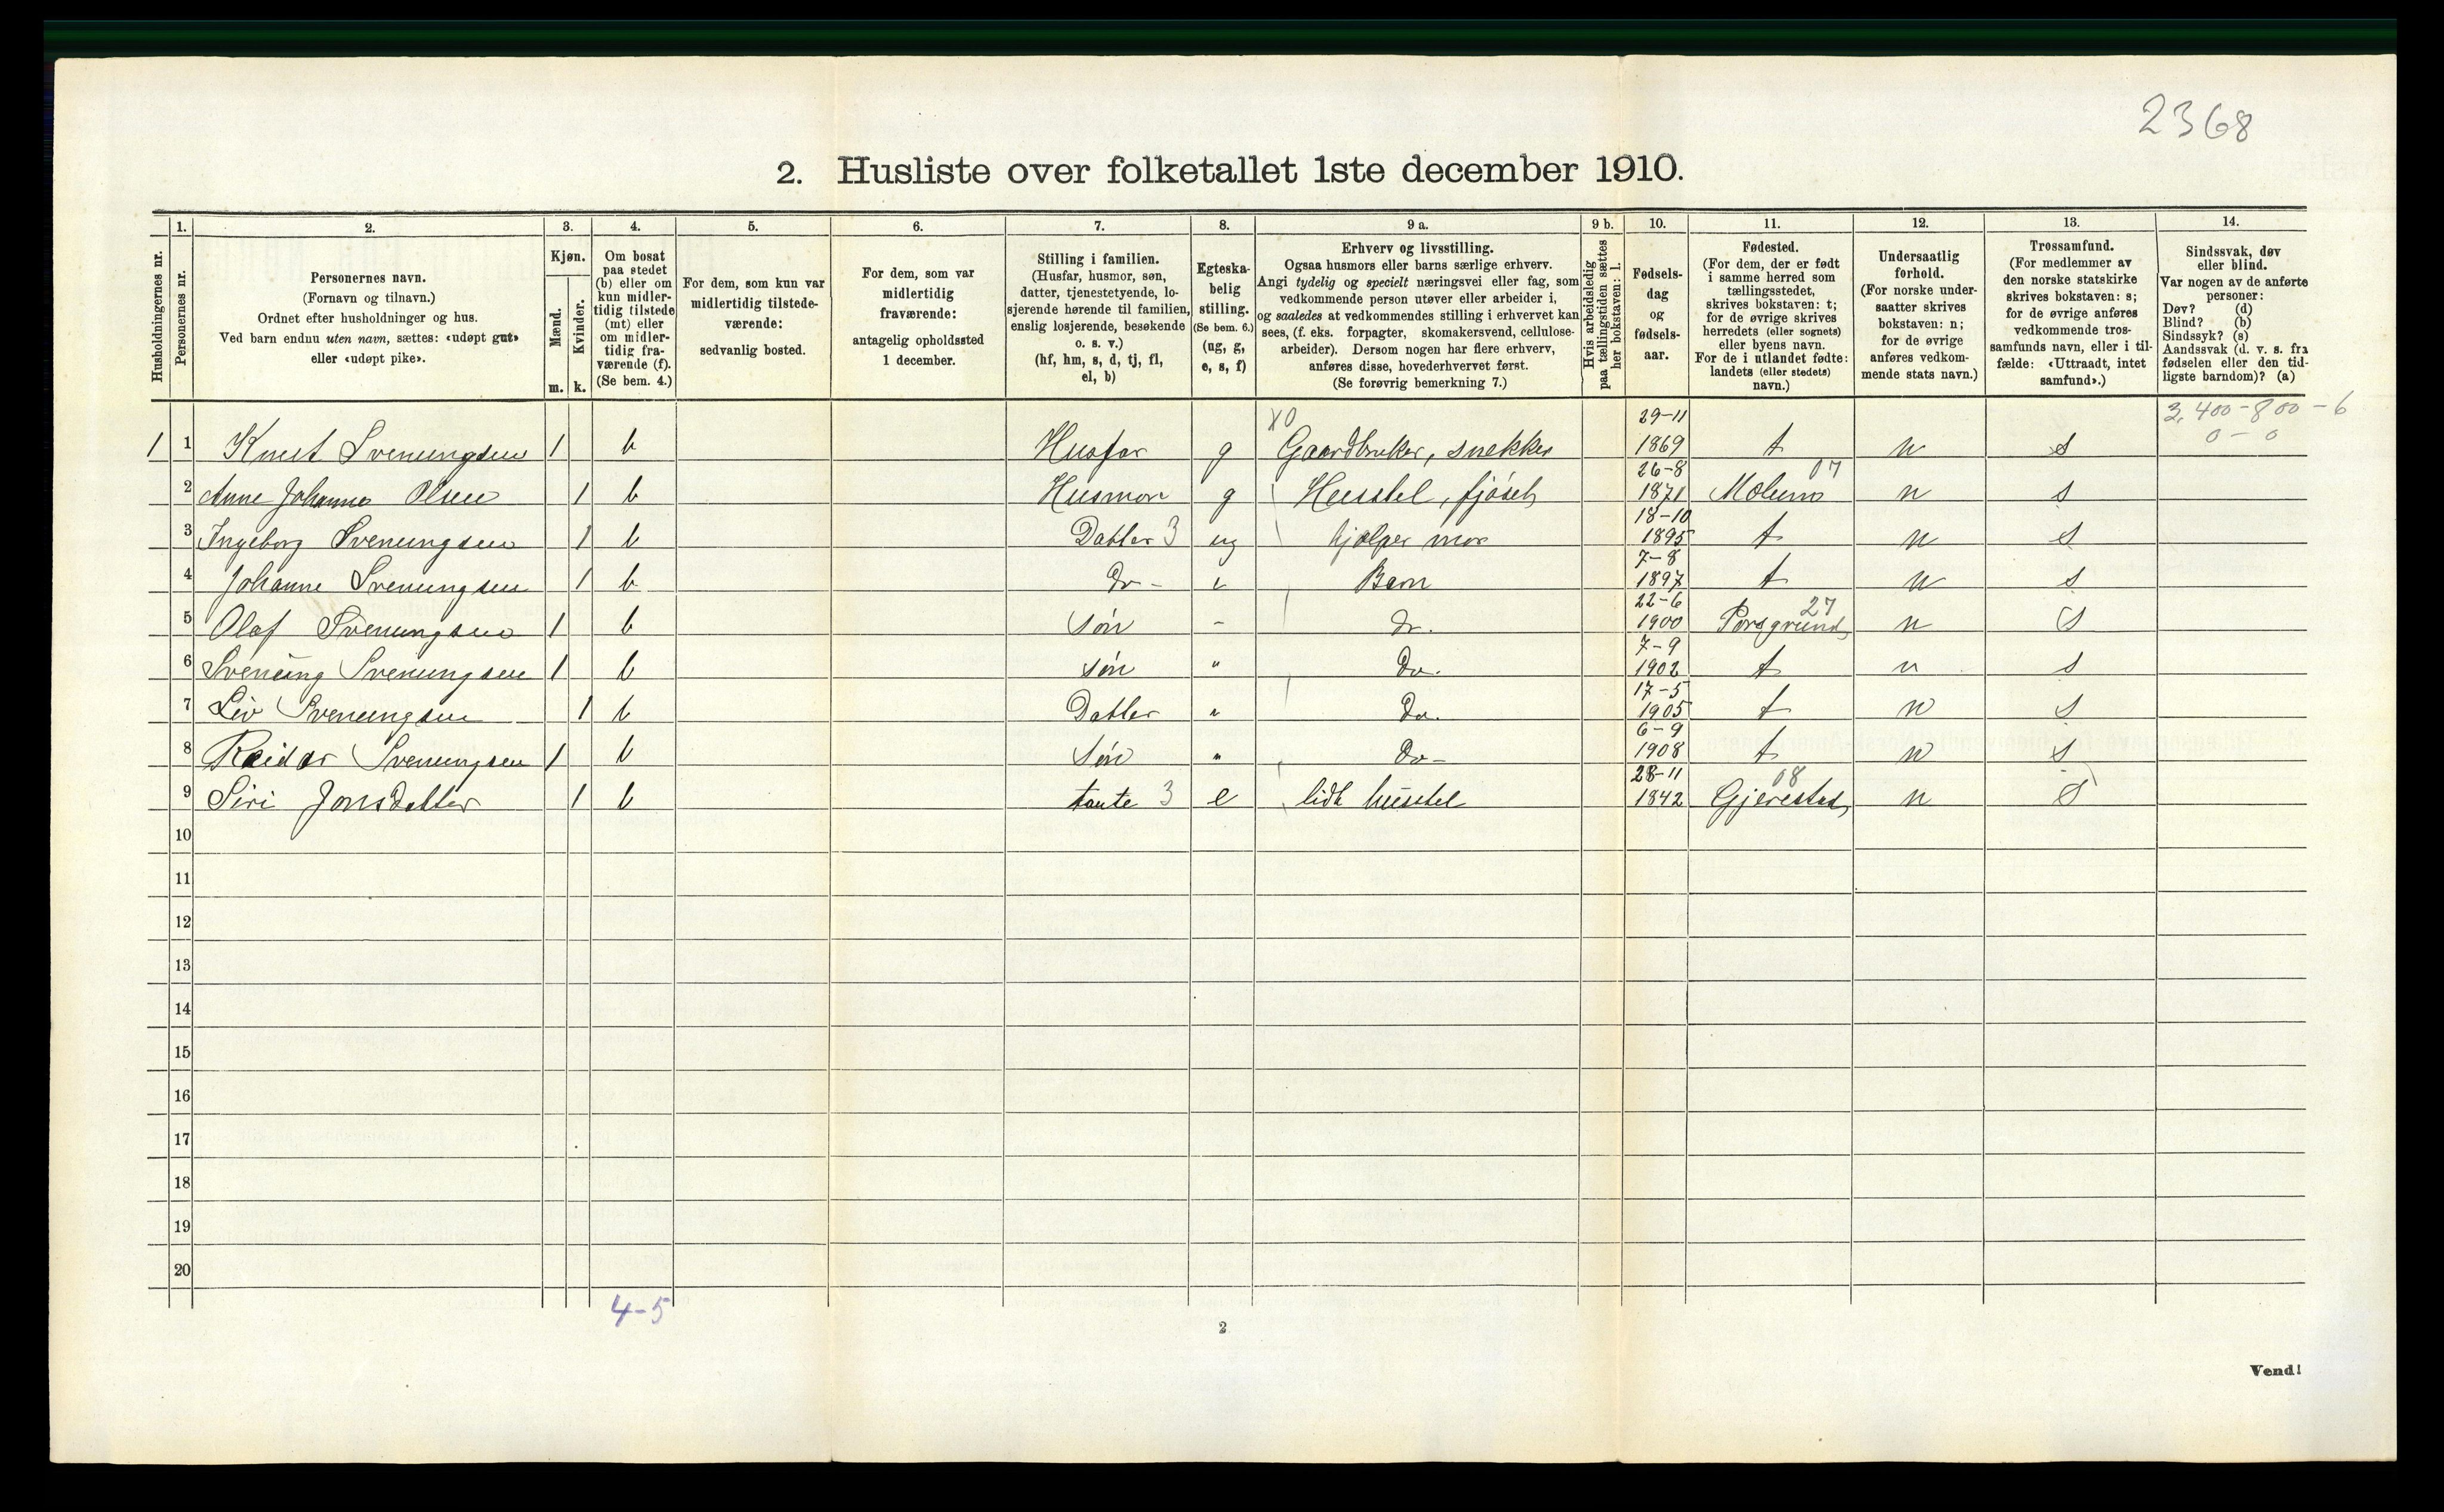 2368
2. Husliste over folketallet 1ste december 1910.
Husholdningernes nr.
1. Personernes nr.
2. Personernes navn.
(Fornavn og tilnavn.)
Ordnet efter husholdninger og hus.
Ved barn endnu uten navn, sættes: «udøpt gut»
eller «udøpt pike».
3. Kjøn.
Mænd. m.
Kvinder. k.
4. Om bosat
paa stedet
(b) eller om
kun midler-
tidig tilstede
(mt) eller
om midler-
tidig fra-
værende (f).
(Se bem. 4.)
5. For dem, som kun var
midlertidig tilstede-
værende:
sedvanlig bosted.
6. For dem, som var
midlertidig
fraværende:
antagelig opholdssted
1 december.
7. Stilling i familien.
(Husfar, husmor, søn,
datter, tjenestetyende, lo-
sjerende hørende til familien,
enslig losjerende, besøkende
o. s. v.)
(hf, hm, s, d, tj, fl,
el, b)
8. Egteska-
belig
stilling.
(Se bem. 6.)
(ug, g,
e, s, f)
9 a. Erhverv og livsstilling.
Ogsaa husmors eller barns særlige erhverv.
Angi tydelig og specielt næringsvei eller fag, som
vedkommende person utøver eller arbeider i,
og saaledes at vedkommendes stilling i erhvervet kan
sees, (f. eks. forpagter, skomakersvend, cellulose-
arbeider). Dersom nogen har flere erhverv,
anføres disse, hovederhvervet først.
(Se forøvrig bemerkning 7.)
9 b. Hvis arbeidsledig
paa tællingstiden sættes
her bokstaven: l.
10. Fødsels-
dag
og
fødsels-
aar.
11. Fødested.
(For dem, der er født
i samme herred som
tællingsstedet,
skrives bokstaven: t;
for de øvrige skrives
herredets (eller sognets)
eller byens navn.
For de i utlandet fødte:
landets (eller stedets)
navn.)
12. Undersaatlig
forhold.
(For norske under-
saatter skrives
bokstaven: n;
for de øvrige
anføres vedkom-
mende stats navn.)
13. Trossamfund.
(For medlemmer av
den norske statskirke
skrives bokstaven: s;
for de øvrige anføres
vedkommende tros-
samfunds navn, eller i til-
fælde: «Uttraadt, intet
samfund».)
14. Sindssvak, døv
eller blind.
Var nogen av de anførte
personer:
Døv? (d)
Blind? (b)
Sindssyk? (s)
Aandssvak (d. v. s. fra
fødselen eller den tid-
ligste barndom)? (a)
3,400-800-6
0-0
1 1 Knut Svenungsen 1 b Husfar g X0 Gaardbruker, snekker 29-11 1869 t n s
2 Anne Johanne Olsen 1 b Husmor g Husstel, fjøset 26-8 1871 Molum 07 n s
3 Ingeborg Svenungsen 1 b Datter 3 ug hjælper mor 18-10 1895 t n s
4 Johanne Svenungsen 1 b do - " Barn 7-8 1897 t n s
5 Olaf Svenungsen 1 b søn - do. 22-6 1900 Porsgrund 27 n s
6 Svenung Svenungsen 1 b søn " do. 7-9 1902 t n s
7 Liv Svenungsen 1 b Datter " do. 17-5 1905 t n s
8 Reidar Svenungsen 1 b søn " do - 6-9 1908 t n s
9 Siri Jonsdatter 1 b tante 3 e lidt husstel 28-11 1842 Gjerestad 08 n s
10
11
12
13
14
15
16
17
18
19
20
4-5
2
Vend!